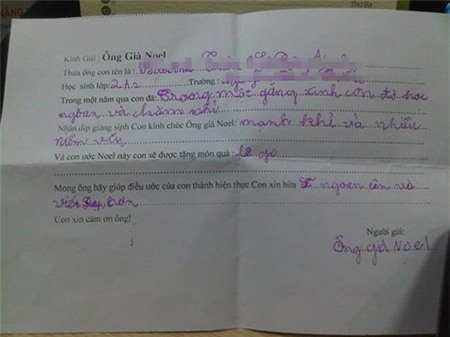 Kính Gửi : Ông Già Noel
Thưa ông con tên là :
Học sinh lớp: 2A2 Trường :
Trong một năm qua con đã: Trong một găng xinh con đã học
ngoan và chăm chỉ
Nhận dịp giáng sinh Con kính chúc Ông già Noel: mạnh khỉ và nhiều
niềm vin
Và con ước Noel này con sẽ được tặng món quà : lê gô
Mong ông hãy giúp điều ước của con thành hiện thực.Con xin hứa ngoan ên và
viết đẹp hơn
Con xin cảm ơn ông!
Người gửi:
Ông già Noel